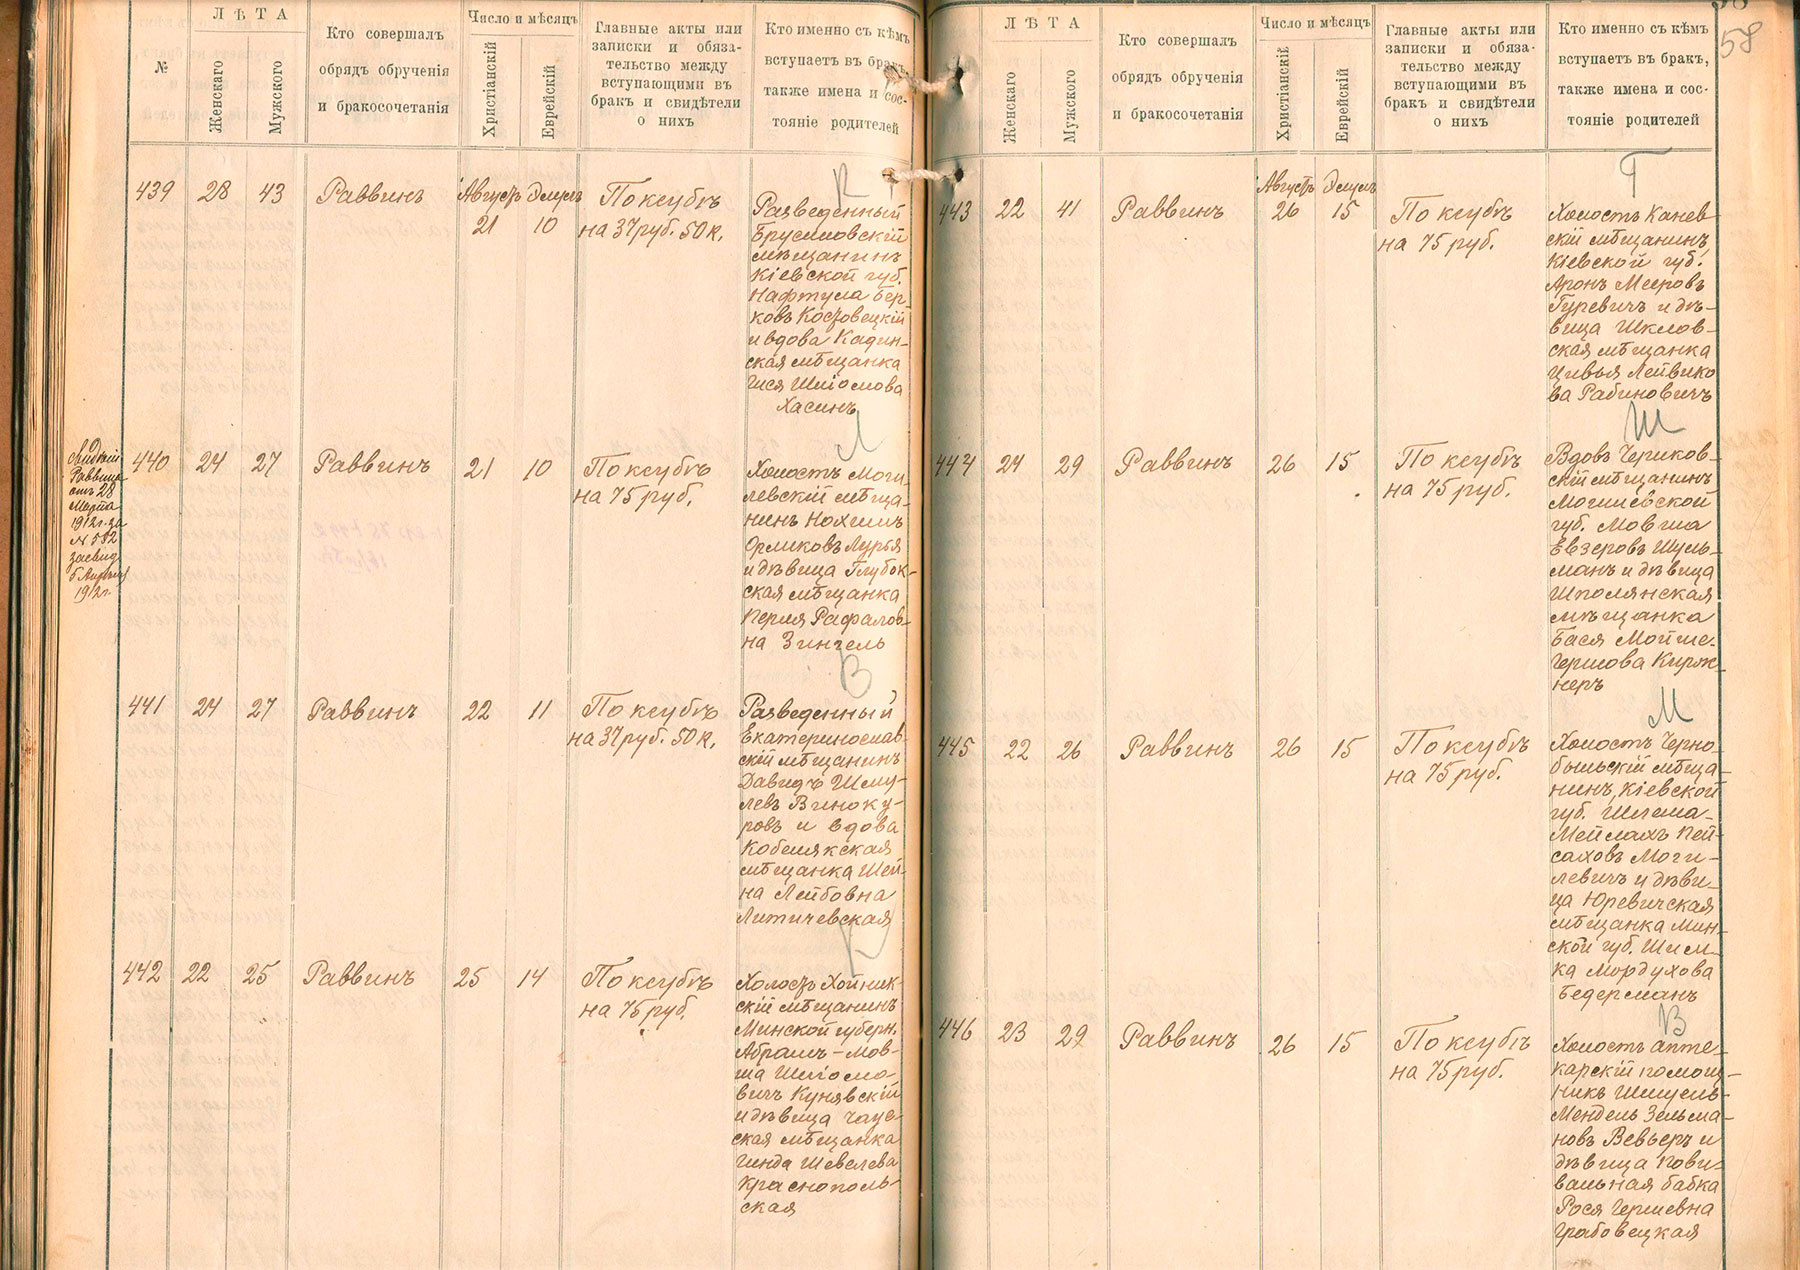 №
ЛѢТА
Женскаго
Мужского
Кто совершалъ
обрядъ обрученія
и бракосочетанія
Число и мѣсяцъ
Христіанскій
Еврейскій
Главные акты или
записки и обяза-
тельство между
вступающими въ
бракъ и свидѣтели
о нихъ
Кто именно съ кѣмъ
вступаетъ въ бракъ,
также имена и сос-
тояніе родителей
439 28 43 Раввинъ Августъ 21 Элулъ 10
По ксубѣ
на 37 руб. 50 к.
К
Разведенный
Брусиловскій
мѣщанинъ
Кіевской губ.
Нафтула Бер-
ковъ Костовецкій
и вдова Кадин-
ская мѣщанка
Гися Шліомова
Хасинъ
Раввина
отъ 28
Марта
1912 г. за
№ 582
засвид.
6 Апрѣля
1912 г.
440 24 27 Раввинъ 21 10
По ксубѣ
на 75 руб.
Л
Холостъ Моги-
левскій мѣща-
нинъ Нохимъ
Орликовъ Лурья
и дѣвица Глубок-
ская мѣщанка
Перля Рафалов-
на Зингель
441 24 27 Раввинъ 22 11
По ксубѣ
на 37 руб. 50 к.
В
Разведенный
Екатеринослав-
скій мѣщанинъ
Давидъ Шму-
левъ Виноку-
ровъ и вдова
Кобелякская
мѣщанка Шей-
на Лейбовна
Литичевская
442 22 25 Раввинъ 25 14
По ксубѣ
на 75 руб.
К
Холостъ Хойник-
скій мѣщанинъ
Минской губерн.
Абрамъ-Мов-
ша Шліомо-
вичъ Кунявскій
и дѣвица Чаус-
ская мѣщанка
Гинда Шевелева
Краснополь-
ская
58
ЛѢТА
Женскаго
Мужского
Кто совершалъ
обрядъ обрученія
и бракосочетанія
Число и мѣсяцъ
Христіанскій
Еврейскій
Главные акты или
записки и обяза-
тельство между
вступающими въ
бракъ и свидѣтели
о нихъ
Кто именно съ кѣмъ
вступаетъ въ бракъ,
также имена и сос-
тояніе родителей
443 22 41 Раввинъ Августъ 26 Элулъ 15
По ксубѣ
на 75 руб.
Г
Холостъ Канев-
скій мѣщанинъ,
Кіевской губ.
Аронъ Мееровъ
Гуревичъ и дѣ-
вица Шклов-
ская мѣщанка
Цивья Лейвико-
ва Рабиновичъ
444 24 29 Раввинъ 26 15
По ксубѣ
на 75 руб.
Ш
Вдовъ Чериков-
скій мѣщанинъ
Могилевской
губ. Мовша
Евзеровъ Шуль-
манъ и дѣвица
Шполянская
мѣщанка
Бася Мойше-
Гершова Кирж-
неръ
445 22 26 Раввинъ 26 15
По ксубѣ
на 75 руб.
М
Холостъ Черно-
быльскій мѣща-
нинъ, Кіевской
губ. Шлема-
Мейлахъ Пей-
саховъ Моги-
левичъ и дѣви-
ца Юревичская
мѣщанка Мин-
ской губ. Шим-
ка Мордухова
Бедерманъ
446 23 29 Раввинъ 26 15
По ксубѣ
на 75 руб.
В
Холостъ апте-
карскій помощ-
никъ Шмуель-
Мендель Зельма-
новъ Вевьеръ и
дѣвица пови-
вальная бабка
Рося Гершевна
Грабовецкая